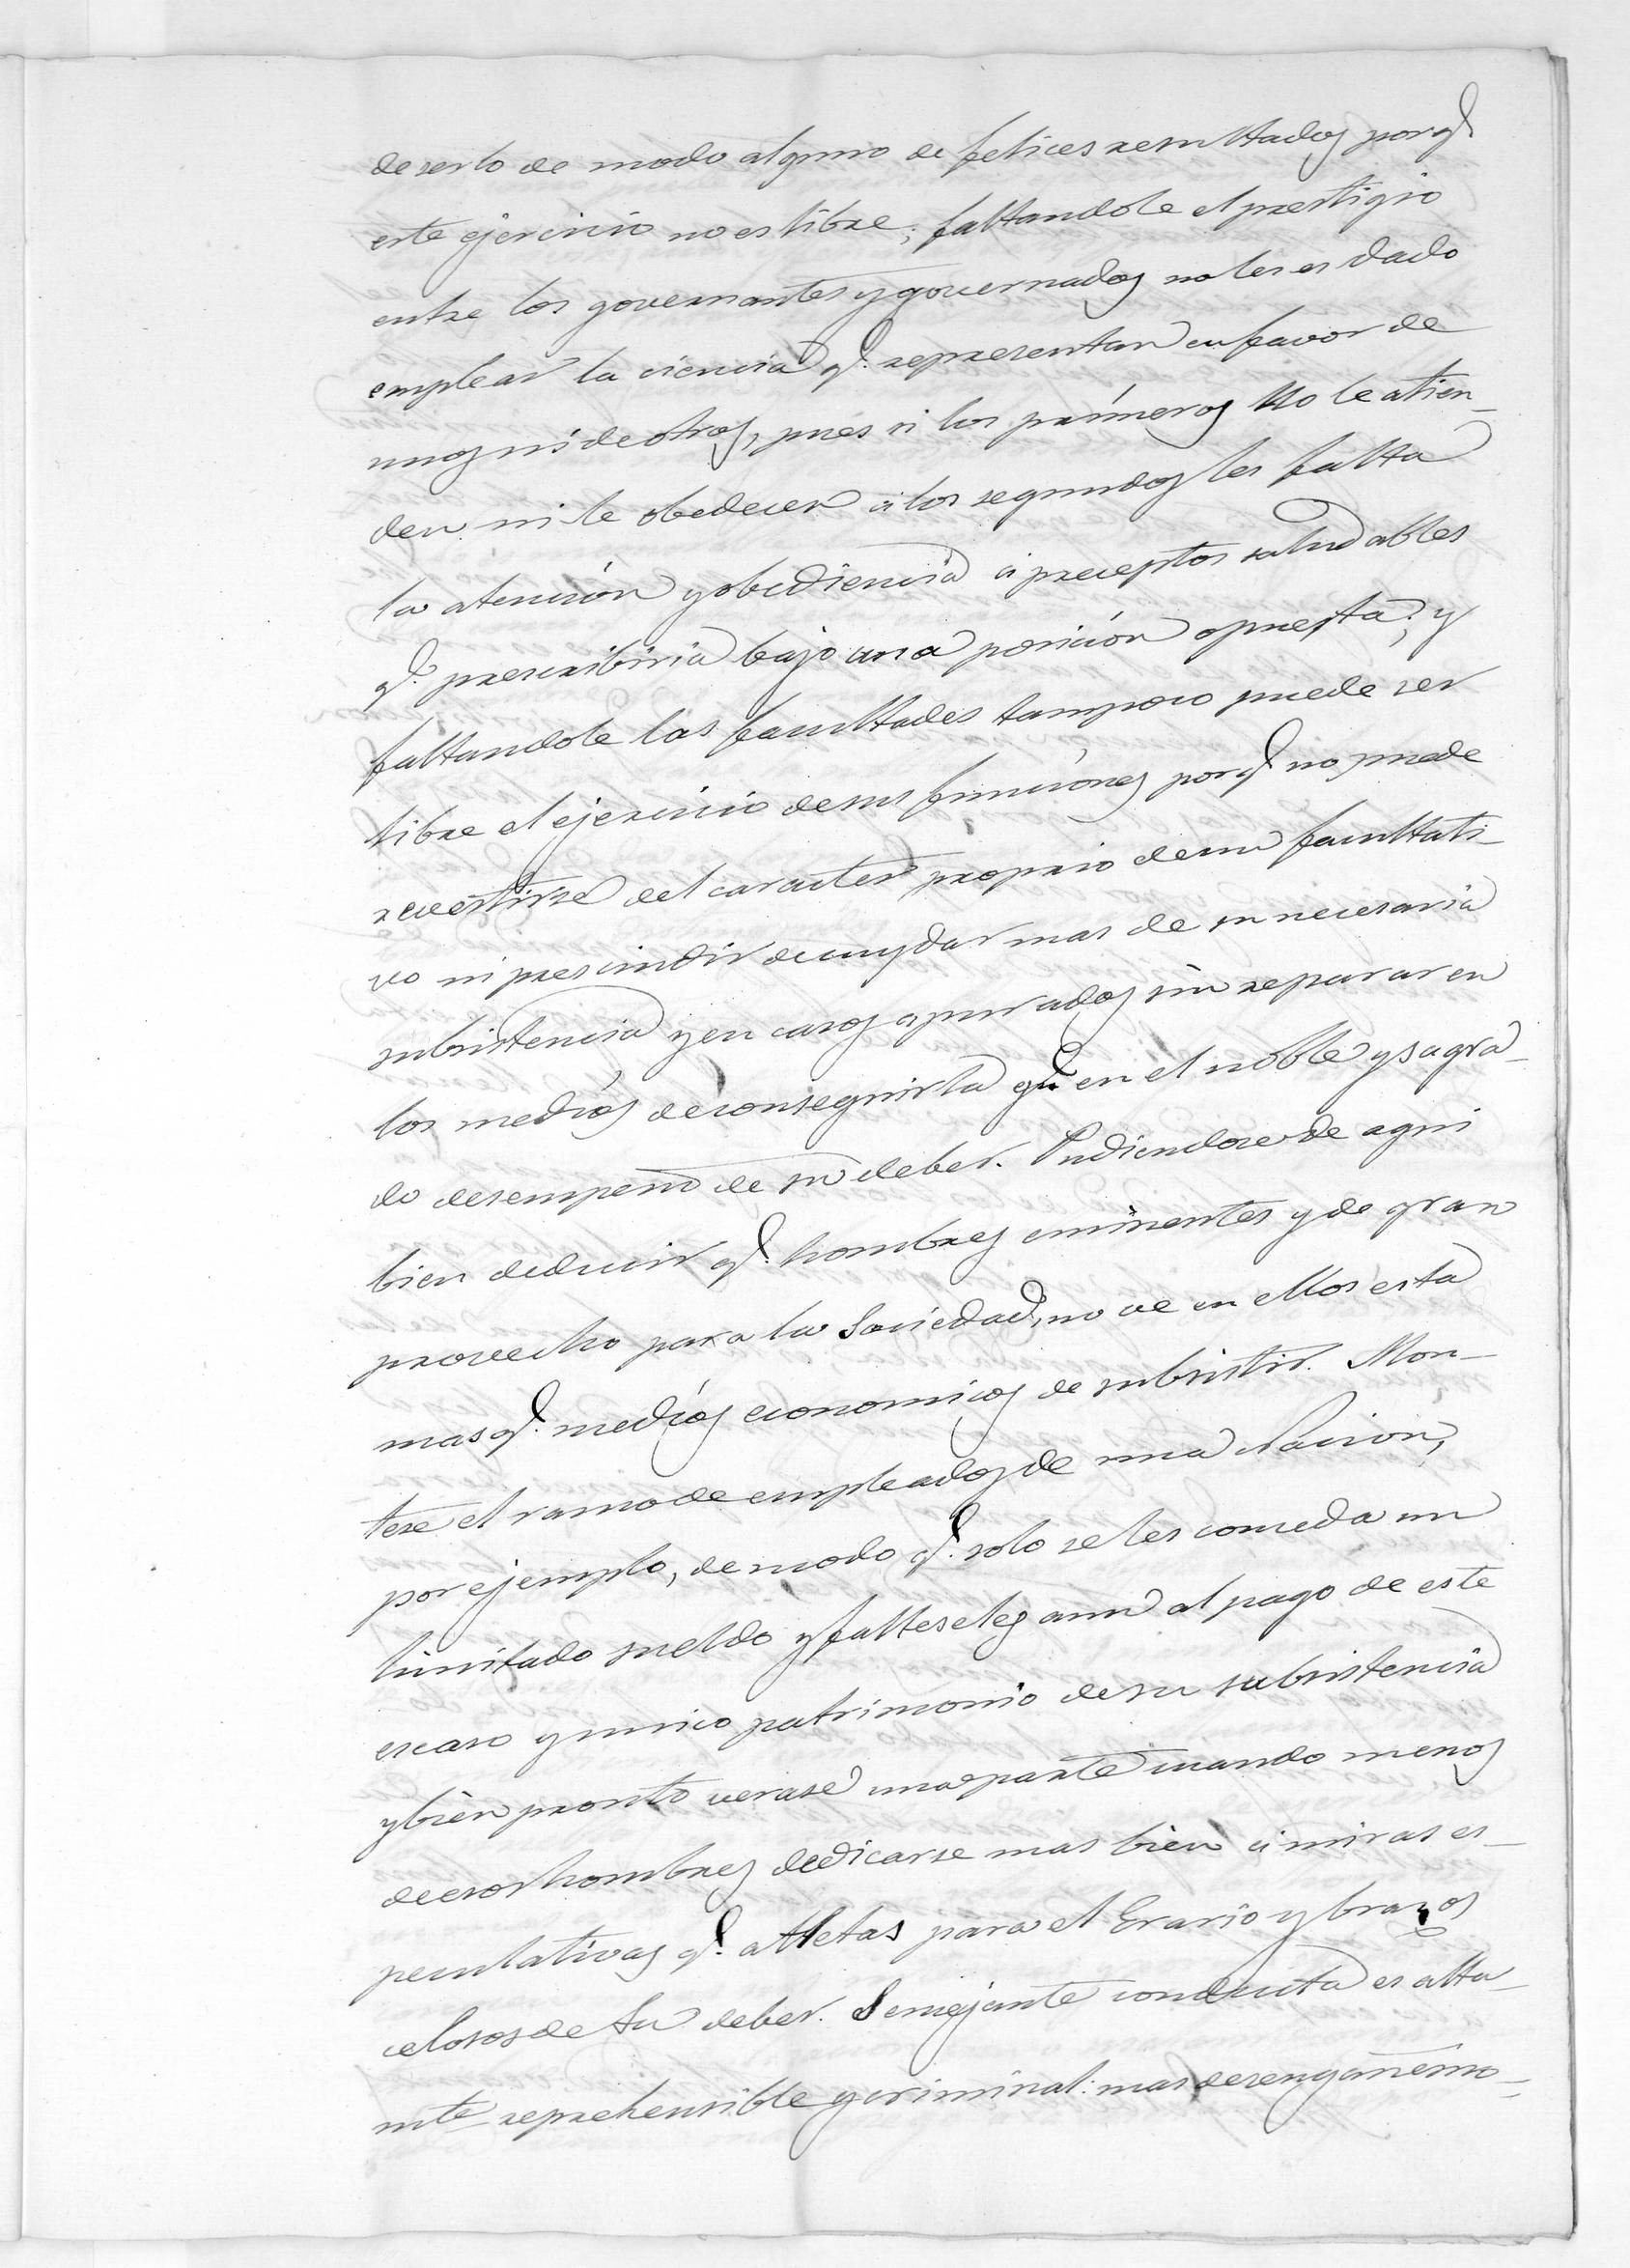 de serlo de modo alguno de felices resultados porq.
este ejercicio no es libre; faltandole el prestigio
entre los governantes y governados no les es dado
emplear la ciencia q. representan en favor de
unos ni de otros, pues si los primeros No le atien-
den ni le obedecen á los segundos les falta
la atencion y obediencia á preceptos saludables
q. prescribiria bajo una posicion opuesta; y
faltandole las facultades tampoco puede ser
libre el ejercicio de sus funciones porq. no puede
revestirse del caracter proprio de un facultati-
vo ni prescindir de cuydar mas de su necesaria
subsistencia y en casos apurados sin reparar en
los medios de conseguirla qu en el noble y sagra-
do desempeño de su deber. Pudiendose de aqui
bien deducir q. hombres eminentes y de gran
provecho para la Sociedad, no ve en ellos esta
mas q. medios economicos de subsistir. Mon-
tese el ramo de empleados de una Nacion,
por ejemplo, de modo q. solo se les conceda un
limitado sueldo y falteseles aun al pago de este
escaso y unico patrimonio de su subsistencia
y bien pronto verase una parte cuando menos
de esos hombres dedicarse mas bien á miras es-
peculativas q. atletas para el Erario y brazos
celosos de su deber. Semejante conducta es alta-
mte reprehensible y criminal: mas desengañemo-